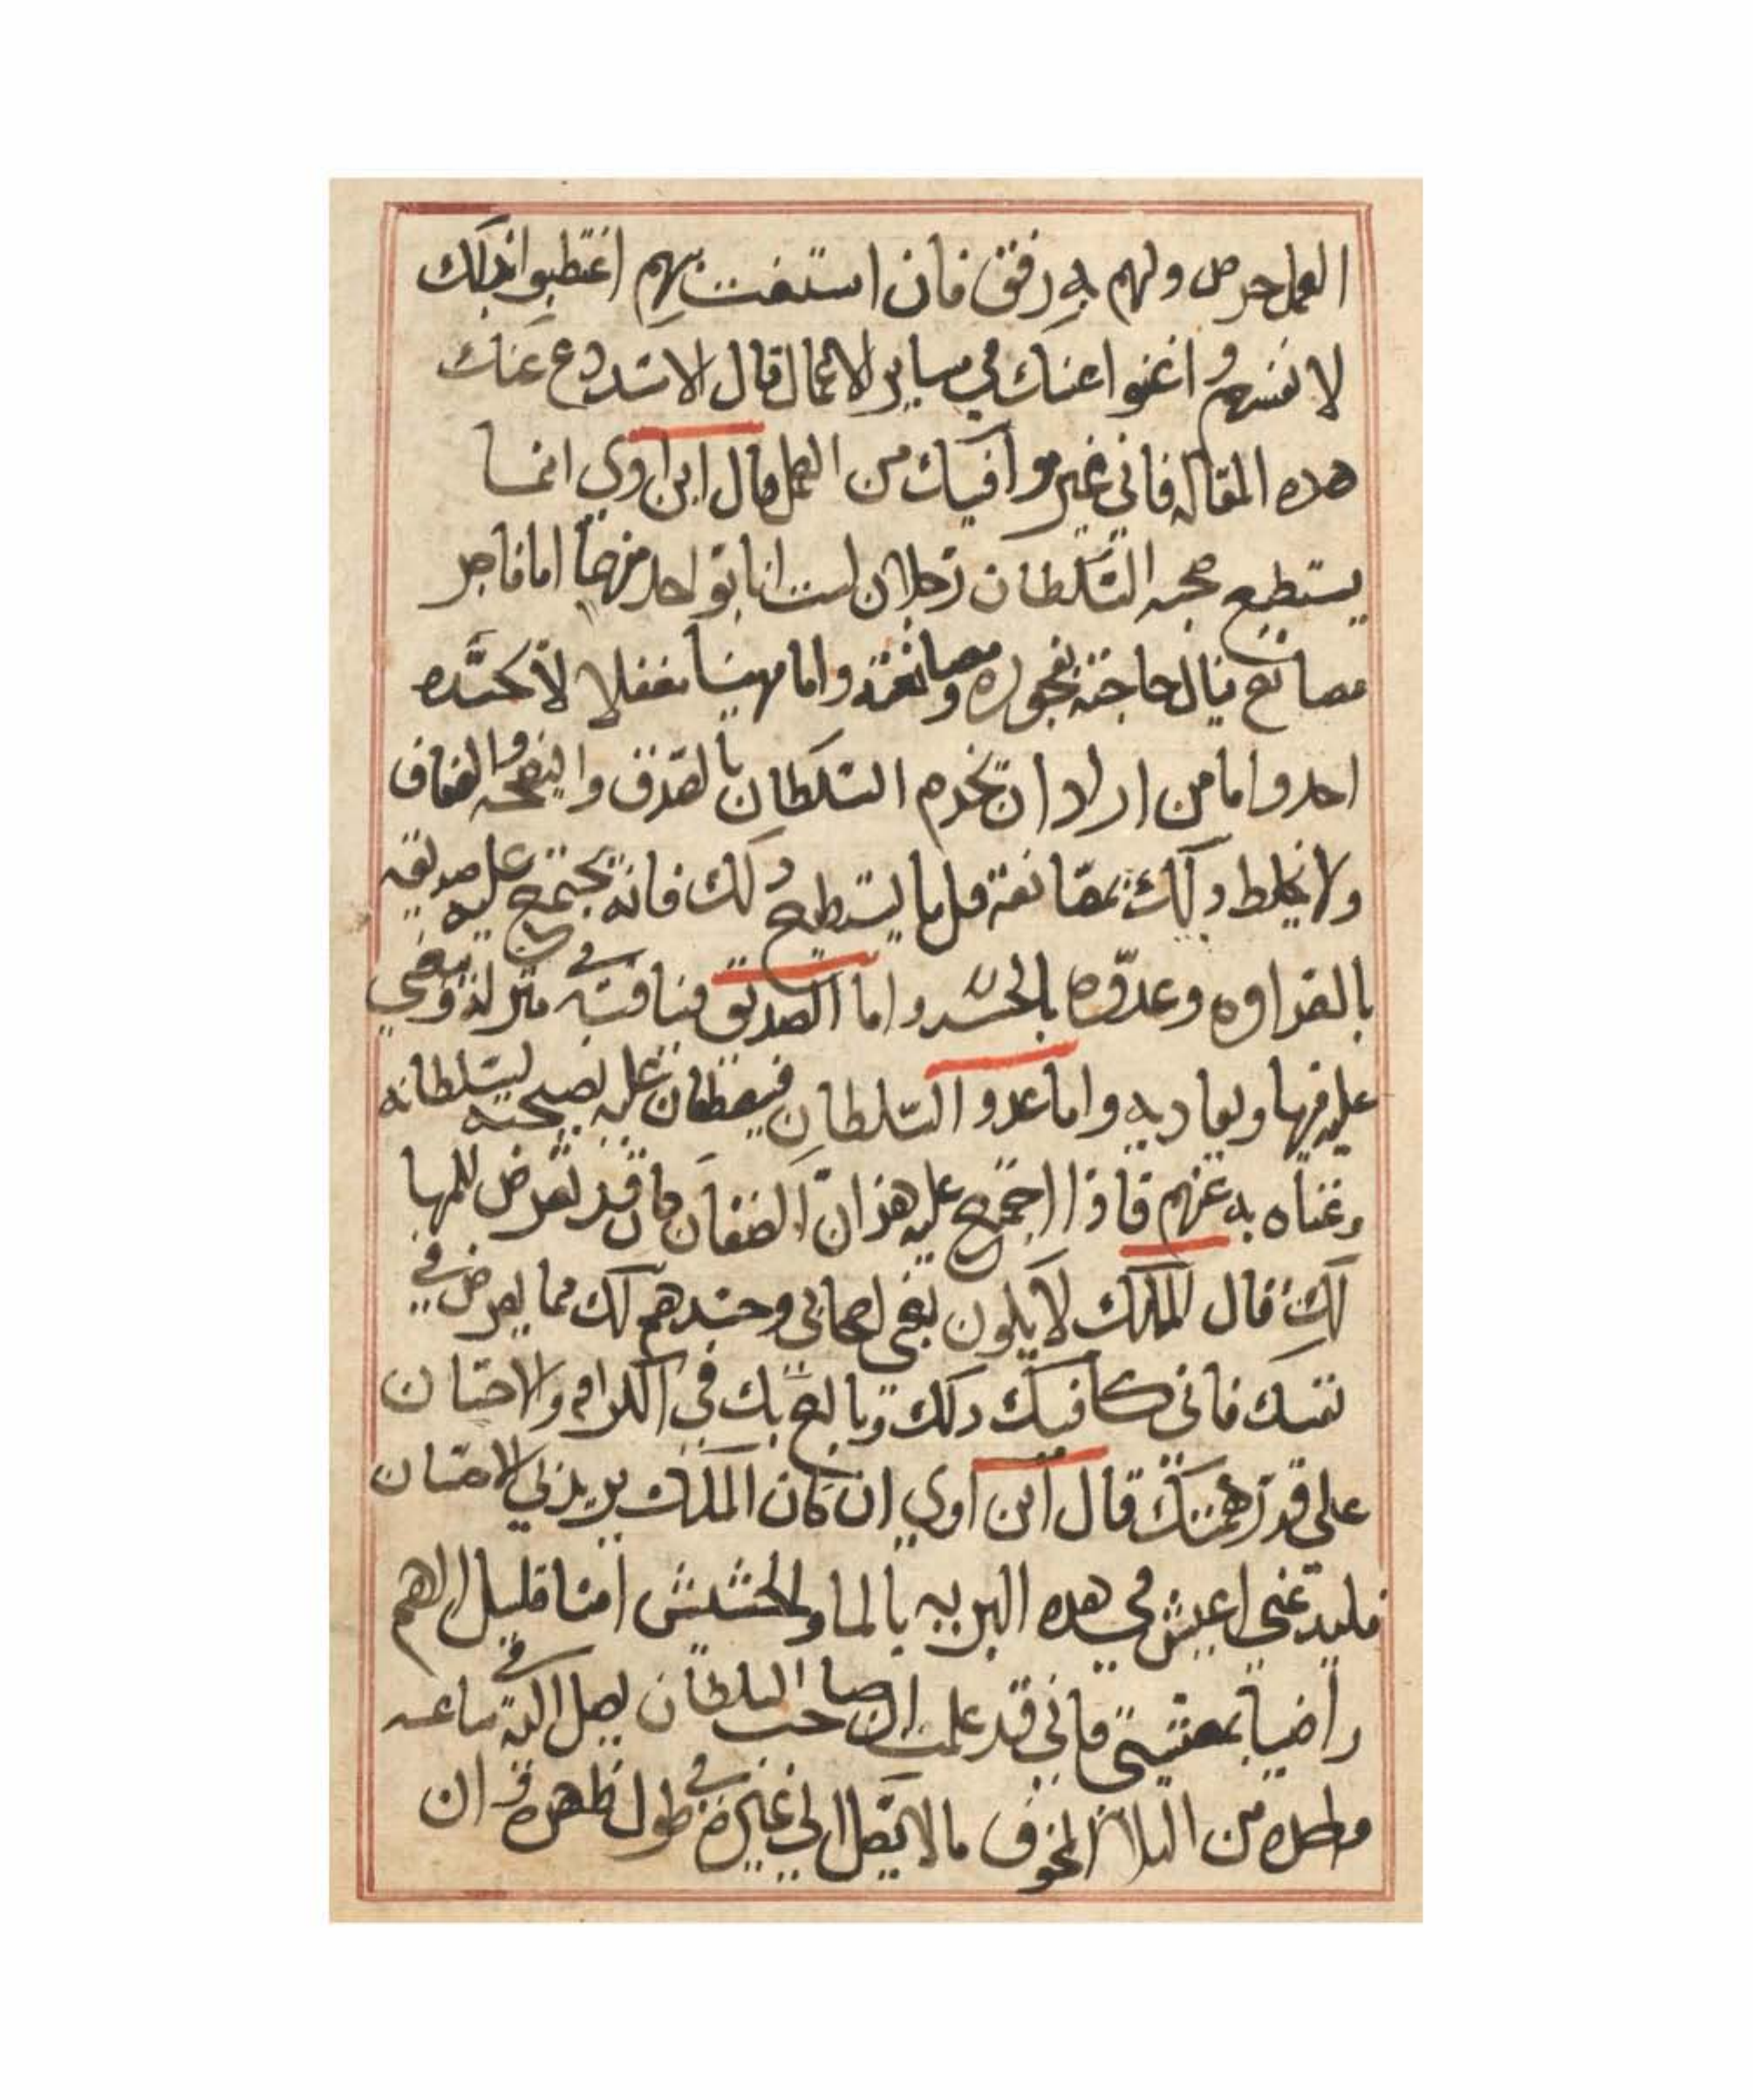 العمل حرص ولهم به رفق فان استعنت بهم اغتطبوا بذلك
لانفسهم واغنوا عنك في ساير الاعمال قال الاسد دع عنك
هذه المقاله فاني غير موافيك من العمل قال ابن اوي انما
يستطيع صحبه السلطان رجلان لست انا بواحد منهما اما فاجر
مصانع ينال حاجته بفجوره ومصانعته واما مهينا مغفلا لا يحسده
احد واما من اراد ان يخدم السلطان بالصدق والنصحه والعفاف
ولا يخلط ذلك بمصانعة قل ما يستطيع ذلك فانه يجتمع عليه عليه صديقه
بالعداوه وعدوه بالحسد واما الصديق فينافسه في منزلته ويبغي
عليه فيها ويعاديه واما عدو السلطان فيضطغان عليه لنصيحته لسلطانه
وغناه به عنهم فاذا اجتمع عليه هذان الصنفان كان قد تعرض للمها
لك قال الملك لا يكون بغي اصحابي وحسدهم لك مما يعرض في
نفسك فاني كافيك ذلك وبالغ بك في الكرامه والاحسان
على قدر همتك قال ابن اوي ان كان الملك يريد لي الاحسان
فليدعني اعيش في هذه البريه بالما والحشيش امنا قليل الهم
راضيا بمعيشتي فاني قد علمت ان صاحب السلطان يصل اليه في ساعه
وحده من البلا والخوف مالا يصل الي غيره في طول ظهره وان